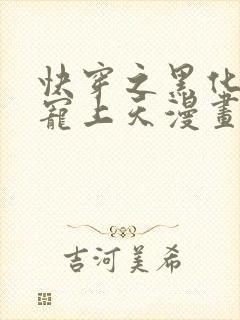 快穿之黑化
寵上天漫畫
吉河美希